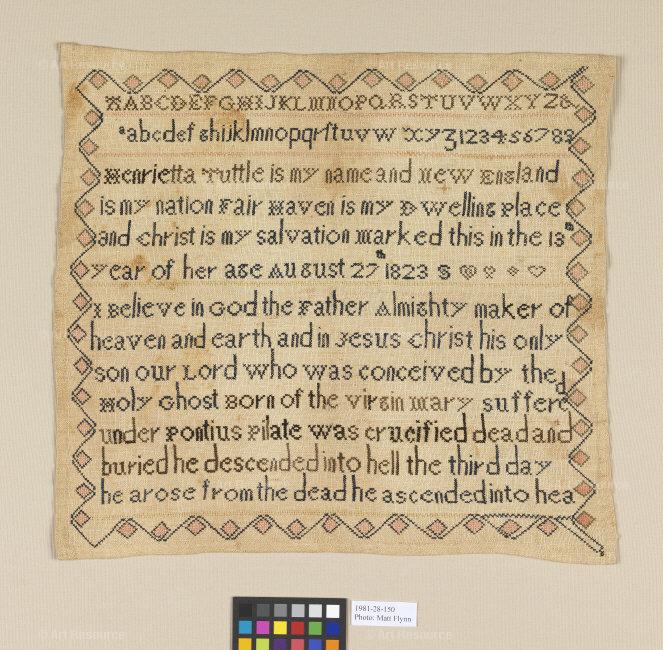 ABCDEFGHIJKLMNOPQRSTUVWXYZ&
abcdefghijklmnopqrſtuvwxyz123456788
Henrietta Tuttle is my name and New England
is my nation Fair Haven is my Dwelling Place
and Christ is my salvation marked this in the 13th
year of her age August 27th 1823
I Believe in God the Father Almighty maker of
heaven and earth and in Jesus Christ his only
son our Lord who was conceived by the
Holy Ghost Born of the virgin Mary suffered
under Pontius Pilate was crucified dead and
buried he descended into hell the third day
he arose from the dead he ascended into hea
1981-28-150
Photo: Matt Flynn
© Art Resource